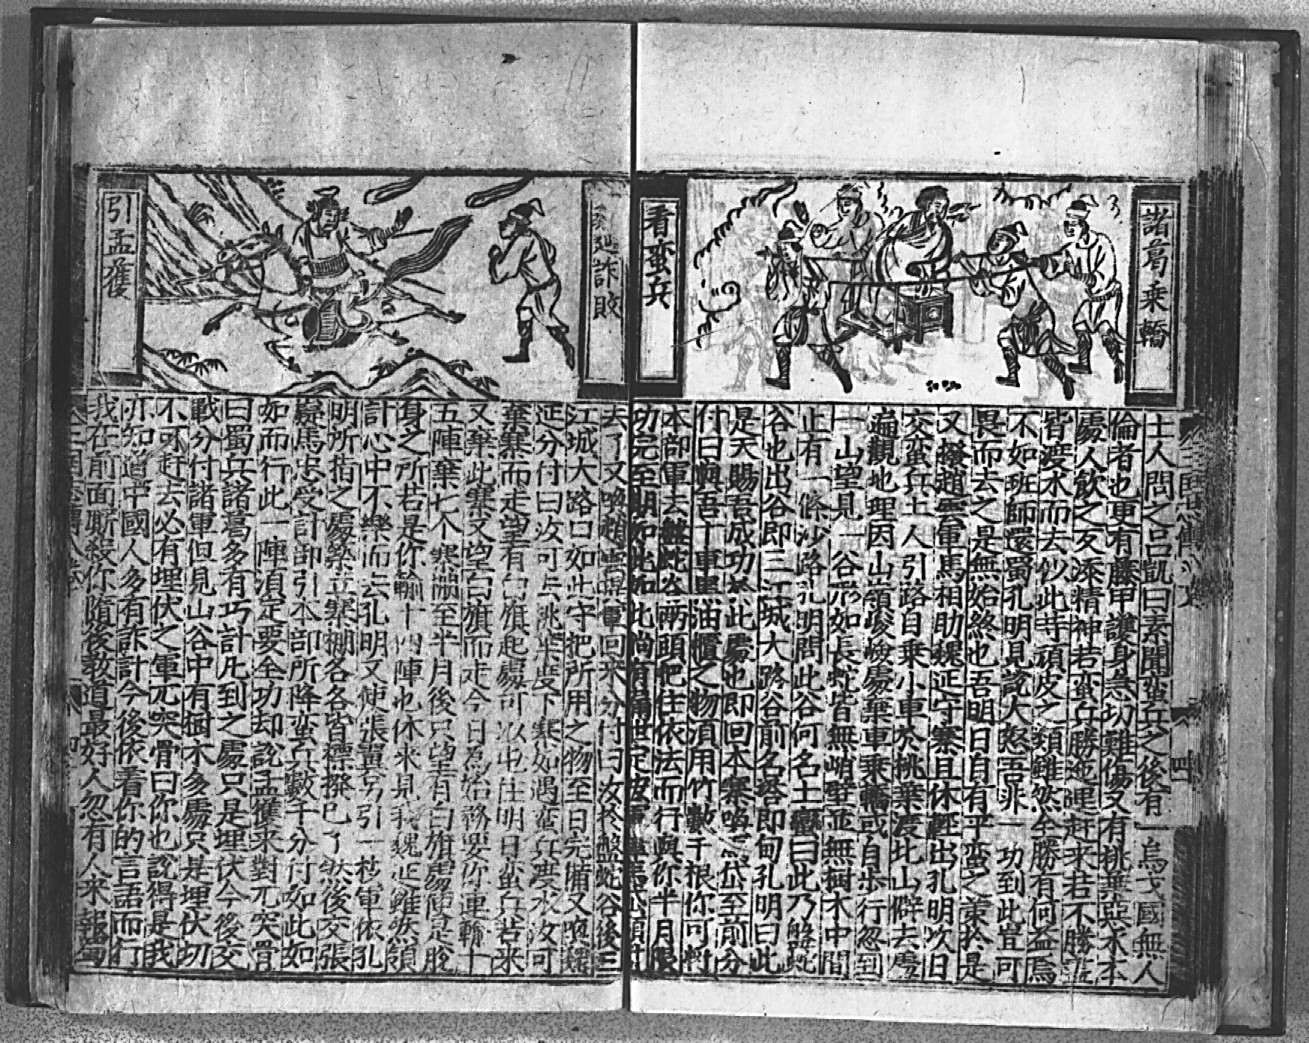 諸葛乘轎
看蛮兵
士人問之呂凱曰素聞蛮兵之後有一烏戈國無人
倫者也更有藤甲護身急切難傷又有桃葉惡水本
處人飲之反添精神若蛮兵勝迤邐赶來若不勝
皆渡水而去似此等頑皮之類雖然全勝有何益焉
不如班師還蜀孔明見說大怒吾非一功到此豈可
畏而去之是無始終也吾明日自有平蛮之策於是
又撥趙雲軍馬相助魏延守寨且休輕出孔明次日
交蛮兵土人引路自乘小車於桃葉渡北山僻去處
遍觀地理因山嶺峻嶮處棄車乘轎或自步行忽到
一山望見一谷形如長蛇皆無峭壁並無樹木中間
止有一條沙路孔明問此谷何名土人曰此乃盤蛇
谷也出谷即三江城大路谷前名塔即甸孔明曰此
是天賜吾成功於此處也即回本寨喚馬岱至前分
付曰與吾十車黑油櫃之物須用竹數千根你可將
本部軍去盤蛇谷兩頭把住依法而行與你半月限
功完至期如此如此
詐敗
引孟獲
去了又喚趙雲 軍回來分付曰汝於盤蛇谷後三
江城大路口如此守把所用之物至日完備又喚魏
延分付曰汝可去桃葉渡下寨如遇蛮兵渡水汝可
棄寨而走望有白旗起處可以屯住明日蛮兵若來
又棄此寨又望白旗而走今日為始務要你連輸十
五陣棄七个寨柵至半月後只望有白旗處便是脫
身之所若是你輸十四陣也休來見我魏延雖然領
計心中不樂而去孔明又使張翼另引一枝軍依孔
明所指之處築立寨柵各各皆標撥已了然後交張
嶷馬忠受計部引本部所降蛮兵數千分付如此如
如而行此一陣須定要全功却說孟獲來對兀突骨
曰蜀兵諸葛多有巧計凡到之處只是埋伏今後交
戰分付諸軍但見山谷中有樹木多處只是埋伏切
不可赶去必有埋伏之軍兀突骨曰你也說得是我
亦知道中國人多有詐計今後依着你的言語而行
我在前面廝殺你隨後教道最好人忽有人來報蜀